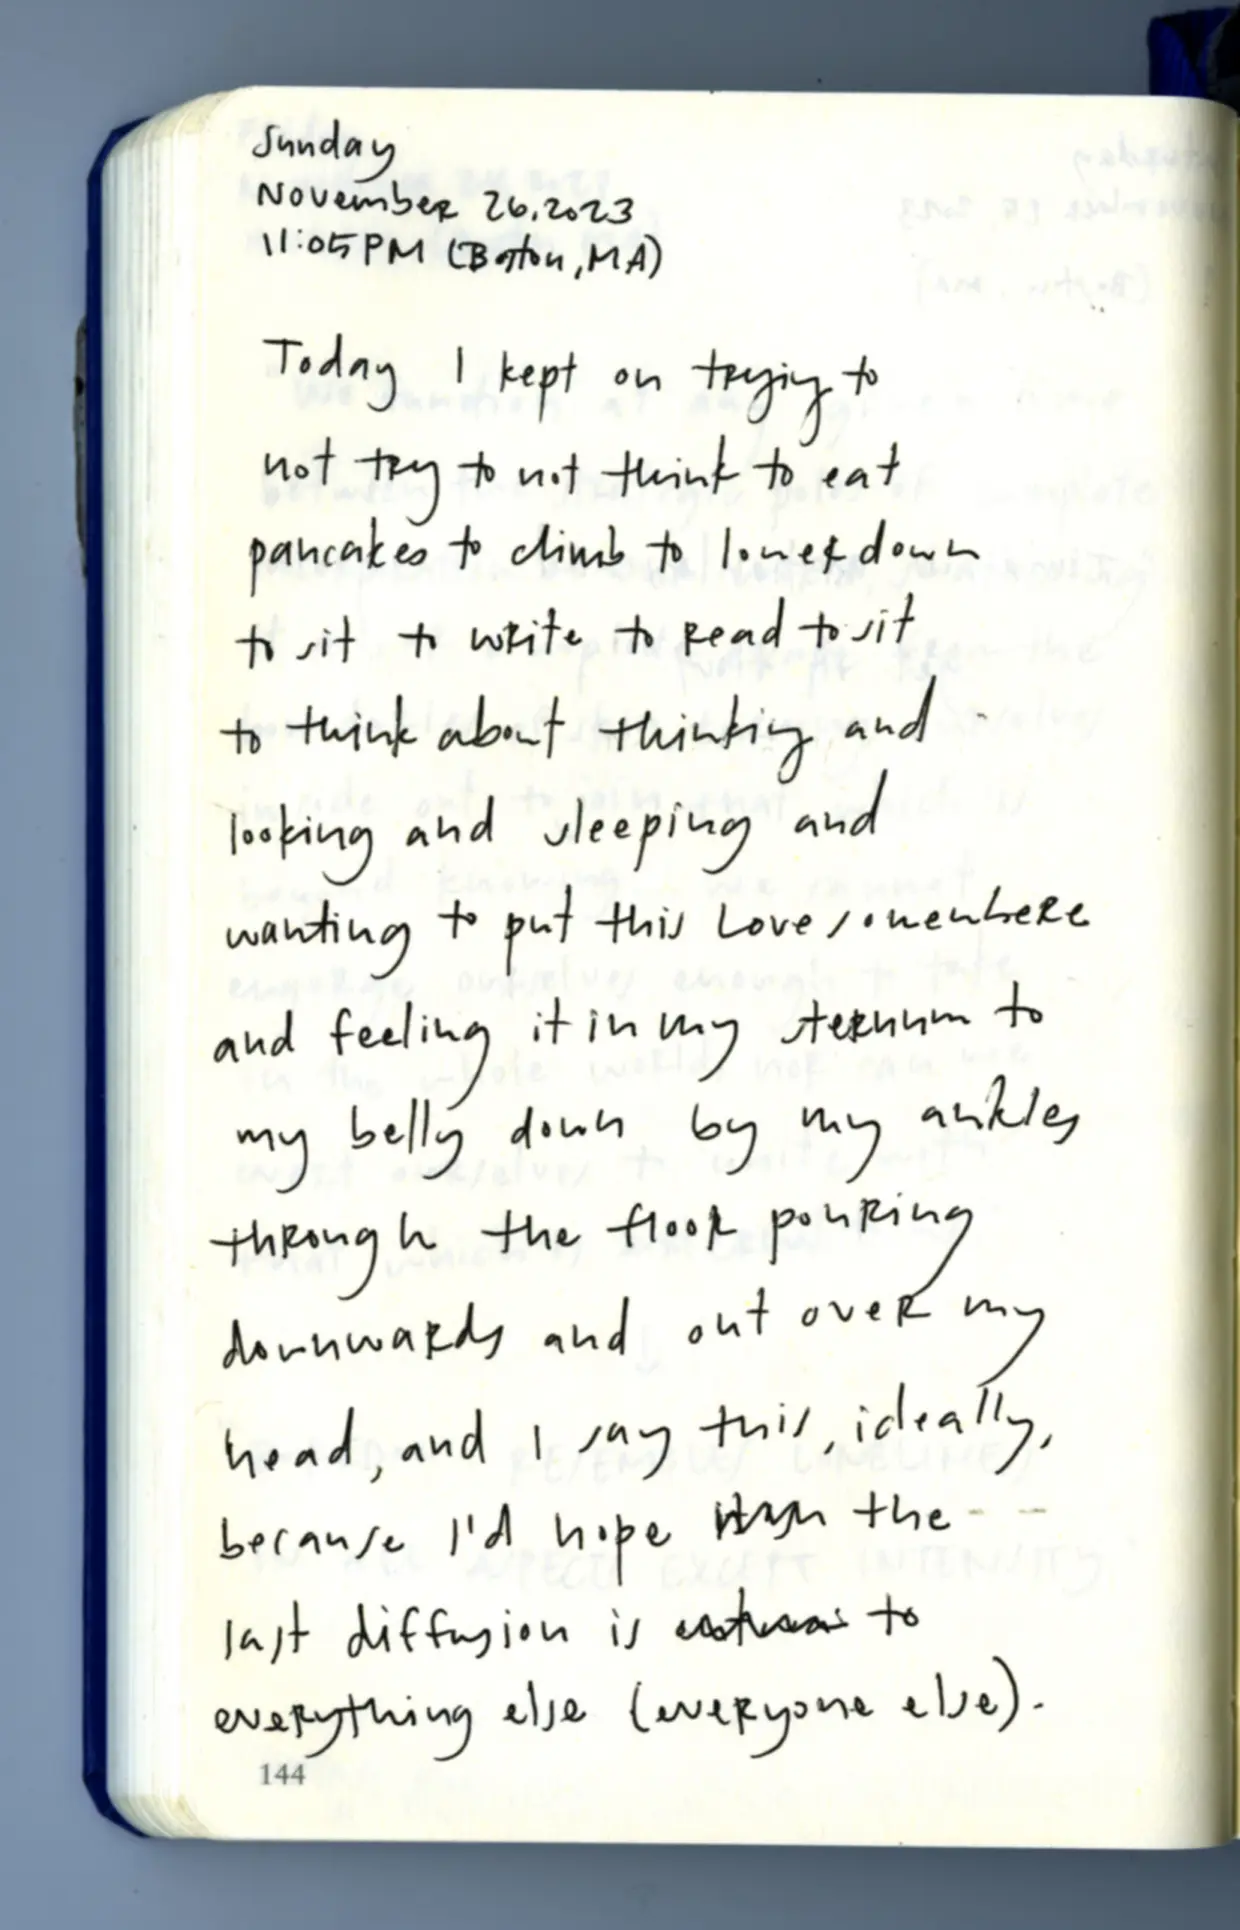 Sunday
November 26, 2023
11:05PM (Boston, MA)
Today I kept on trying to
not try to not think to eat
pancakes to climb to lower down
to sit to write to read to sit
to think about thinking and
looking and sleeping and
wanting to put this love somewhere
and feeling it in my sternum to
my belly down by my ankles
through the floor pouring
downwards and out over my
head, and I say this, ideally,
because I'd hope the
last diffusion is to
everything else (everyone else).
144